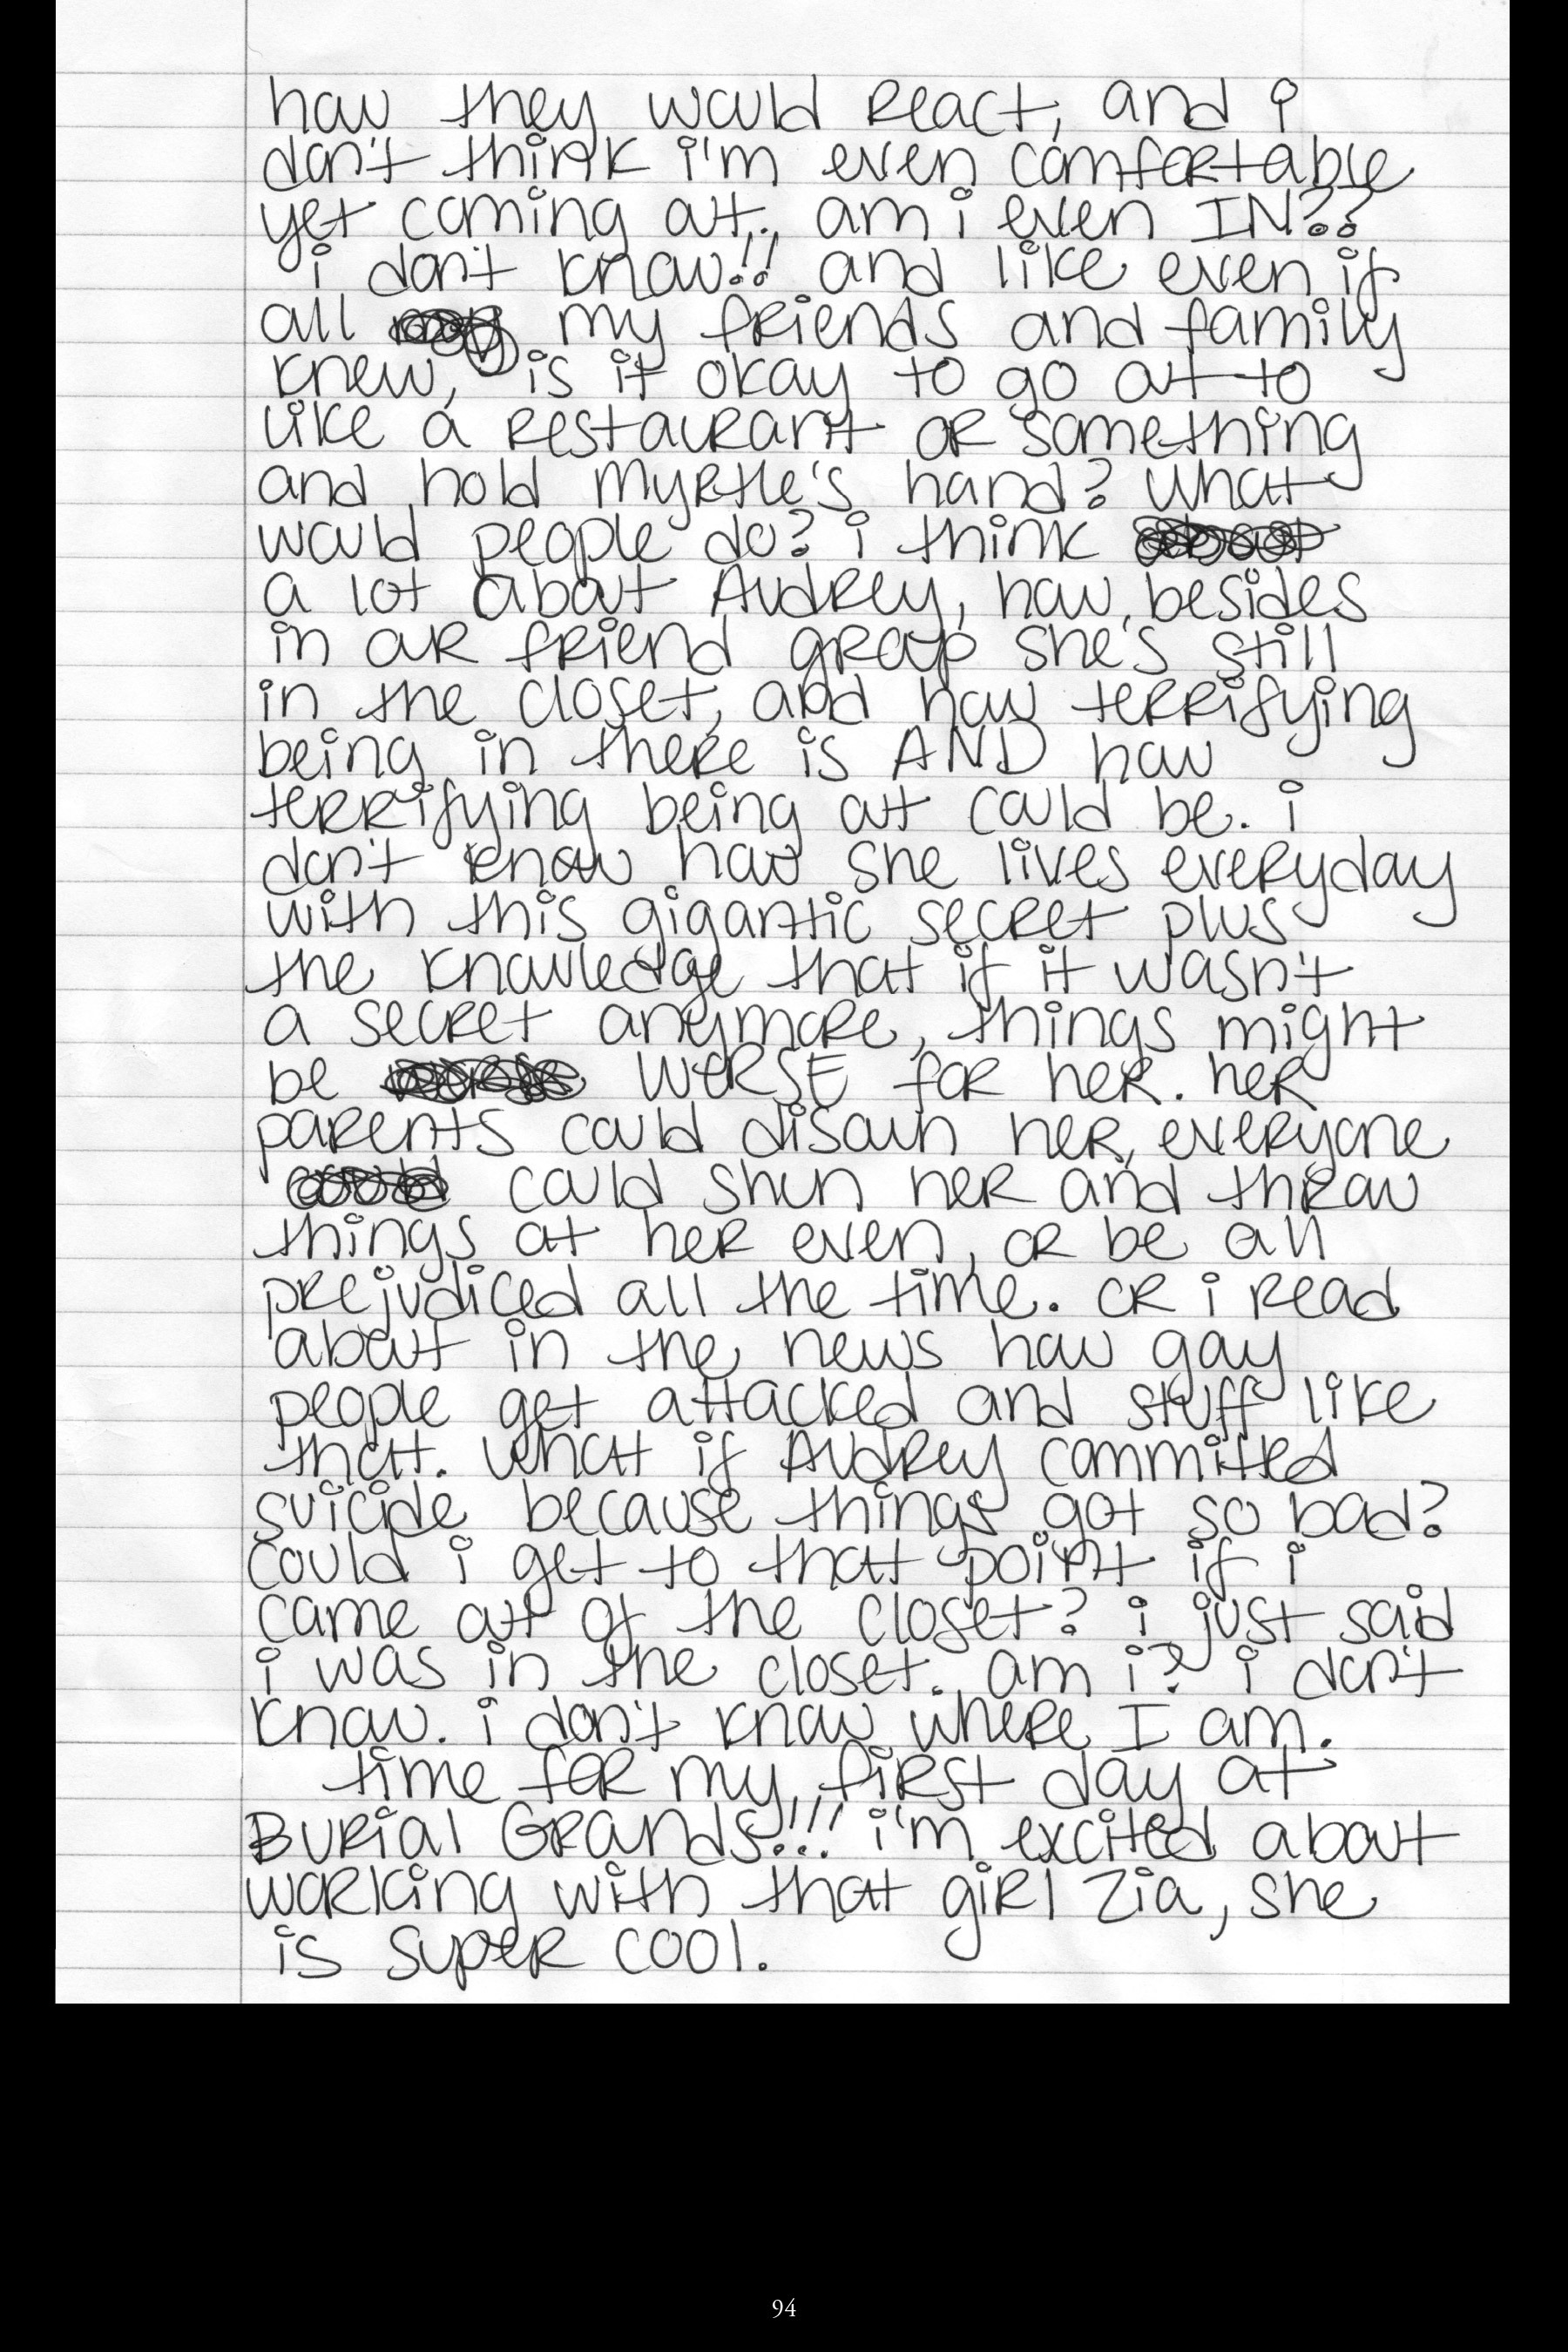 how they would react, and i
don't think i'm even comfortable
yet coming out. am i even IN??
i don't know!! and like even if
all my friends and family
knew, is it okay to go out to
like a restaurant or something
and hold myrtle's hand? what
would people do? i think
a lot about Audrey, how, besides
in our friend group she's still
in the closet, and how terrifying
being in there is AND how
terrifying being out could be. i
don't know how she lives everyday
with this gigantic secret plus
the knowledge that if it wasn't
a secret anymore, things might
be WORSE for her. her
parents could disown her, everyone
could shun her and throw
things at her even, or be all
prejudiced all the time. or i read
about in the news how gay
people get attacked and stuff like
that. what if Audrey committed
suicide because things got so bad?
could i get to that point if i
came out of the closet? i just said
i was in the closet. am i? i don't
know. i don't know where I am.
time for my first day at
Burial Grounds!!! i'm excited about
working with that girl Zia, she
is super cool.
94